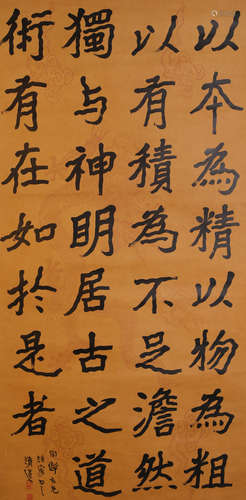 以本為精以物為粗
以有積為不足澹然
獨与神明居古之道
術有在如於是者